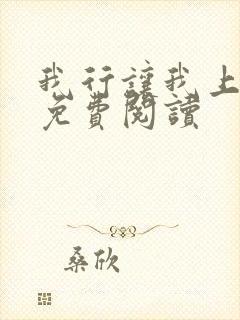 我行讓我上
免費閱讀
桑欣